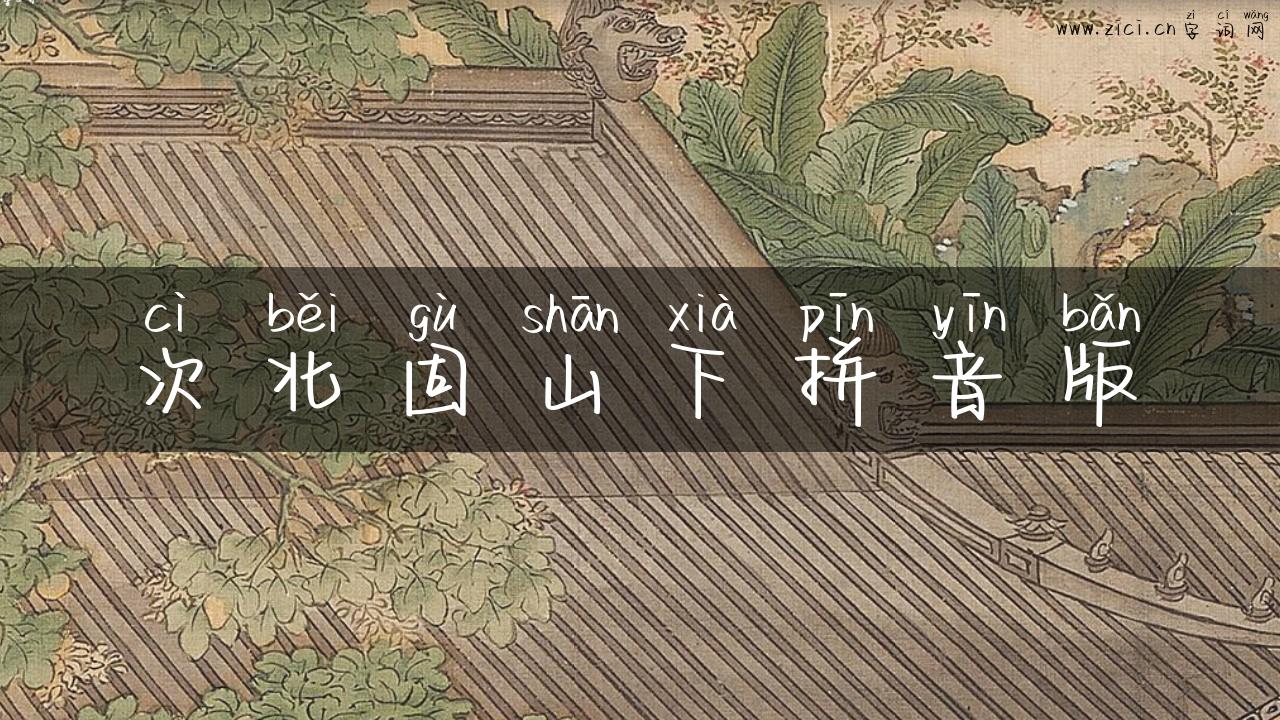 zì cí wǎng
www.zici.cn 字词网
cì běi gù shān xià pīn yīn bǎn
次北固山下拼音版